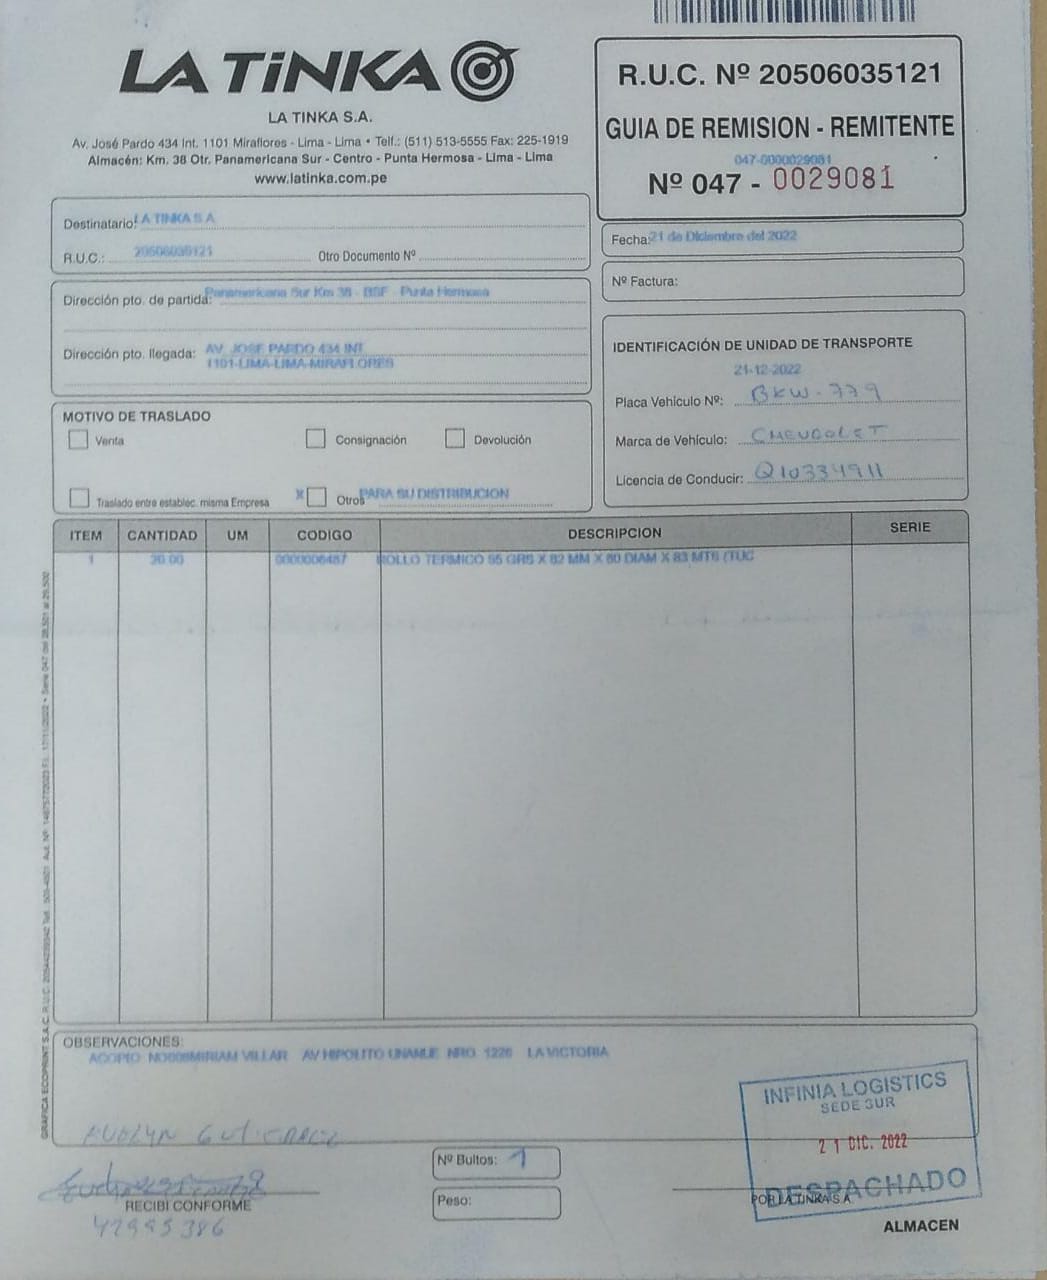 LA TiNKA
LA TINKA S.A.
Av. José Pardo 434 Int. 1101 Miraflores - Lima - Lima • Telf.: (511) 513-5555 Fax: 225-1919
Almacén: Km. 38 Otr. Panamericana Sur - Centro - Punta Hermosa - Lima - Lima
www.latinka.com.pe
R.U.C. Nº 20506035121
GUIA DE REMISION - REMITENTE
047-0000029081
Nº 047 - 0029081
Destinatario: LA TINKA S A
R.U.C.: 20506035121 Otro Documento Nº
Fecha: 21 de Diciembre del 2022
Nº Factura:
Dirección pto. de partida: Panamericana Sur Km 38 - BSF - Punta Hermosa
Dirección pto. llegada: AV. JOSE PARDO 434 INT
1101-LIMA-LIMA-MIRAFLORES
IDENTIFICACIÓN DE UNIDAD DE TRANSPORTE
21-12-2022
Placa Vehículo Nº: BKW-779
Marca de Vehículo: CHEVROLET
Licencia de Conducir: Q10334911
MOTIVO DE TRASLADO
Venta Consignación Devolución
Traslado entre establec. misma Empresa X Otros PARA SU DISTRIBUCION
ITEM CANTIDAD UM CODIGO DESCRIPCION SERIE
1 20.00 0000006487 ROLLO TERMICO 55 GRS X 82 MM X 80 DIAM X 83 MTS (TUC
OBSERVACIONES:
ACOPIO NO008MIRIAM VILLAR AV HIPOLITO UNANUE NRO 1226 LA VICTORIA
INFINIA LOGISTICS
SEDE SUR
21 DIC. 2022
DESPACHADO
Nº Bultos: 1
Peso:
RECIBI CONFORME
42995386
POR LA TINKA S.A.
ALMACEN